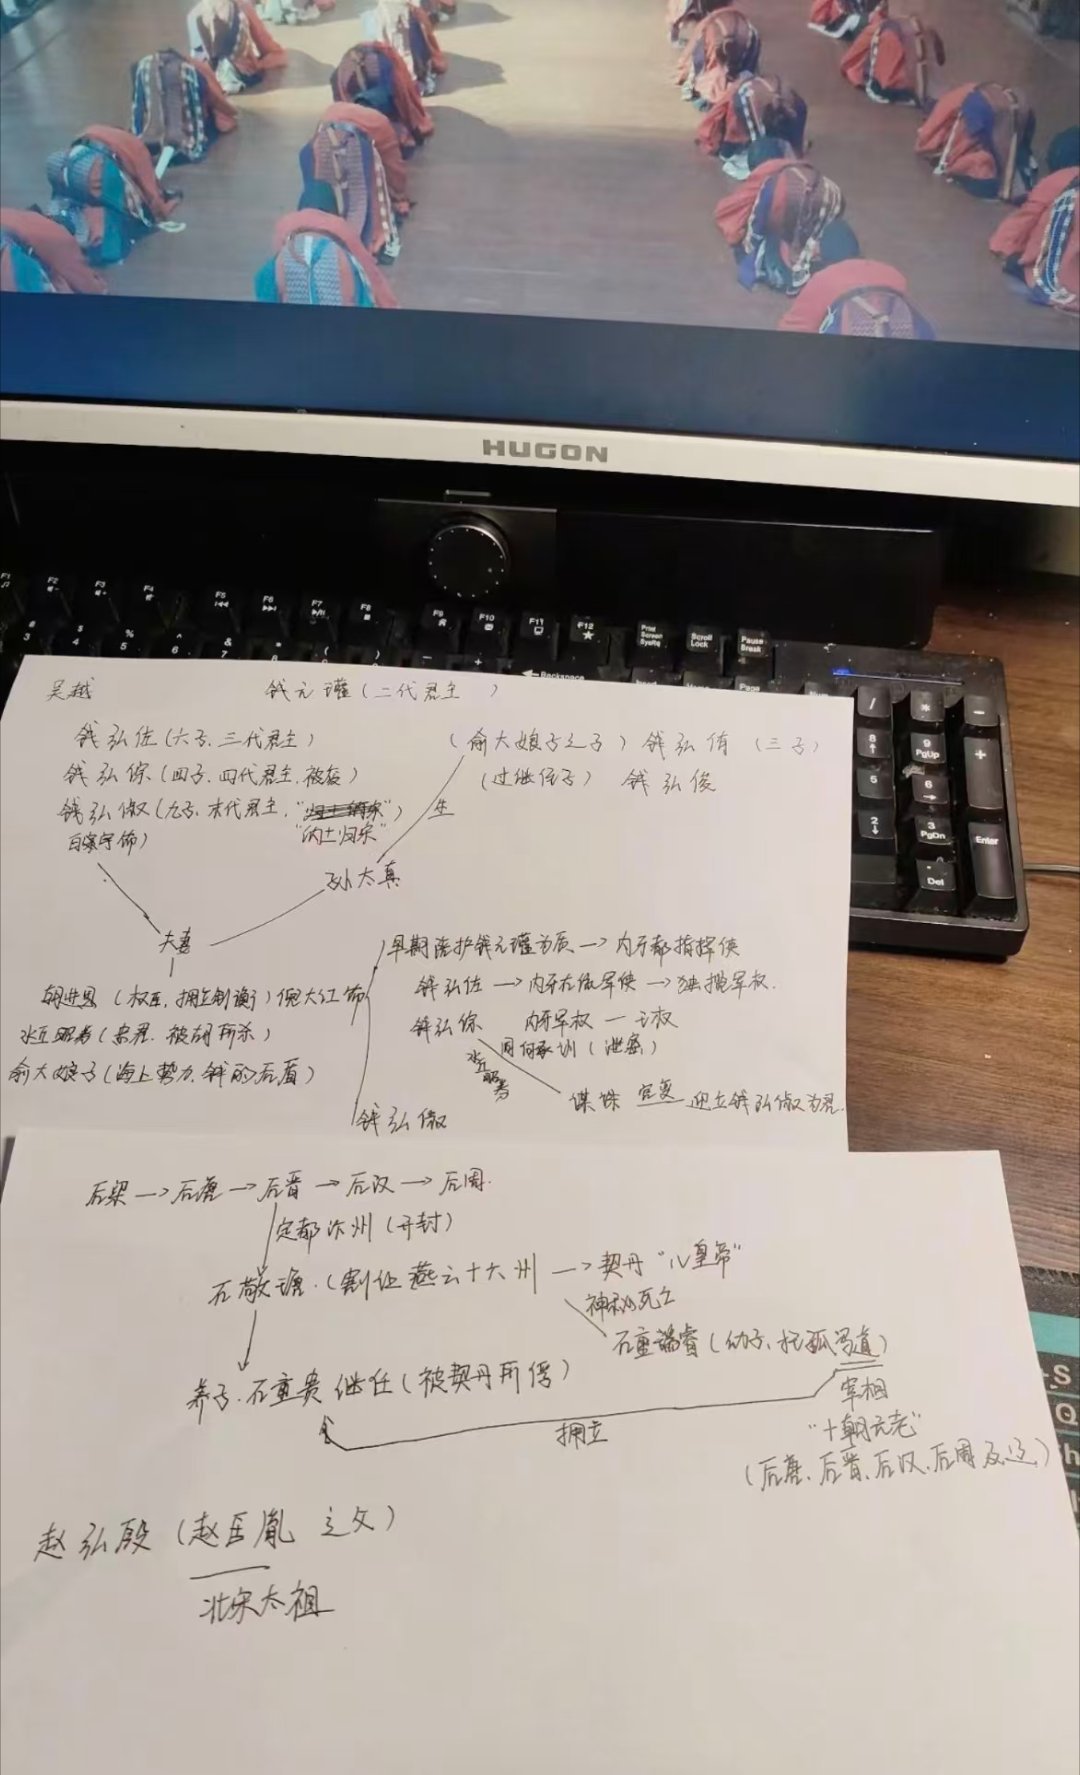 HUGON
F1
F2
F3
F4
F5
F6
F7
F8
F9
F10
F11
F12
Print Screen SysRq
Scroll Lock
Pause Break
Backspace
吴越 钱元瓘(二代君主 )
钱弘佐(六子、三代君主)
(俞大娘子之子)钱弘侑(三子)
钱弘倧(四子、四代君主、被废)
(过继侄子) 钱弘俊
钱弘俶(九子、末代君主、
"纳土归宋")
白宇饰)
生
孙太真
夫妻
胡进思(权臣,拥立制衡)倪大红饰
水丘昭券(忠君、被胡所杀)
俞大娘子(海上势力、钱的后盾)
早期陪护钱元瓘为质→内牙都指挥使
钱弘佐→内牙左统军使→独揽军权.
钱弘倧 内牙军权—王权
同何承训(泄密)
水丘昭券
谋诛 宫变 迎立钱弘俶为君.
钱弘俶
后梁→后唐→后晋→后汉→后周.
定都汴州(开封)
石敬瑭.(割让燕云十六州→契丹"儿皇帝"
神秘死亡
石重睿(幼子、托孤冯道)
养子.石重贵继任(被契丹所俘)
宰相
拥立
"十朝元老"
(后唐、后晋、后汉、后周及辽)
赵弘殷(赵匡胤 之父)
北宋太祖